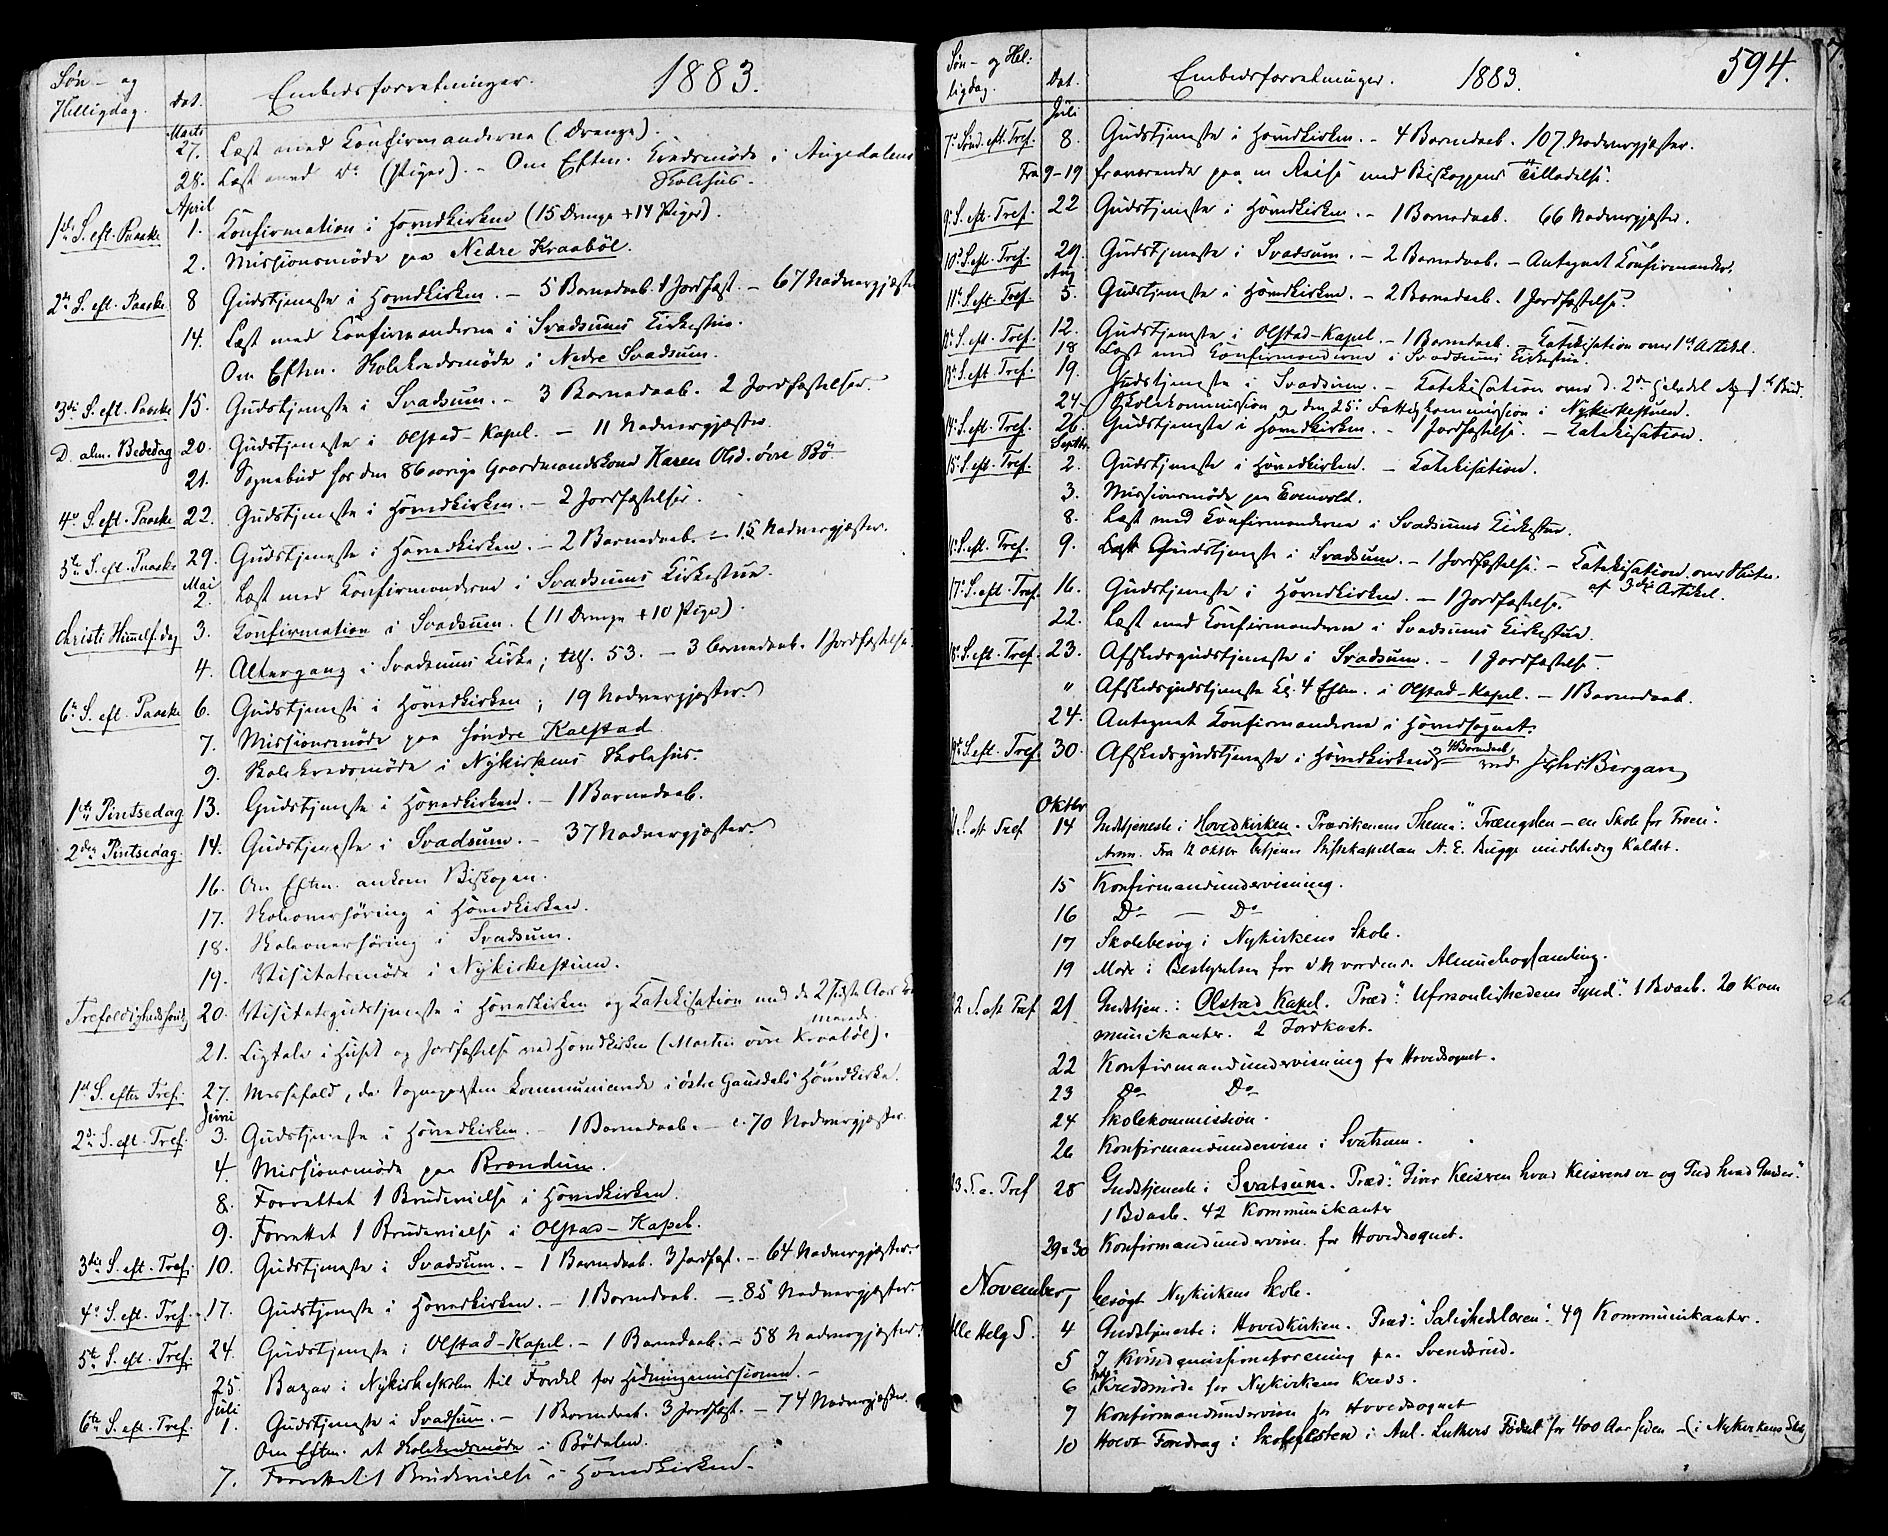 Søn- og Helligdag. Dat. Embedsforretninger. 1883.
Marts 27. Læst med Konfirmanderne (Drenge).
28. Læst med Do (Piger). – Om Eftm. Kredsmøde i Augedalens
Skolehus.
April
1ste S. eft. Paaske 1. Konfirmation i Hovedkirken (15 Drenge + 14 Piger).
2. Missionsmøde paa Nedre Kraabøl.
2den S. eft. Paaske 8 Gudstjeneste i Hovedkirken. – 5 Barnedaab. 1 Jordfæst. – 67 Nadvergjæster
14. Læst med Konfirmanderne i Svadsums Kirkestue.
Om Eftm. Skolekredsmøde i Nedre Svadsum.
3die S. eft. Paaske 15. Gudstjeneste i Svadsum. – 3 Barnedaab. 2 Jordfæstelser.
D. alm. Bededag 20. Gudstjeneste i Olstad-Kapel. – 11 Nadvergjæster
21. Sognebud hos den 86 aarige Gaardmandskone Karen Olsd. øvre Bø.
4de S. eft. Paaske 22. Gudstjeneste i Hovedkirken. – 2 Jordfæstelser.
5te S. eft. Paaske 29. Gudstjeneste i Hovedkirken. – 2 Barnedaab. – 15 Nadvergjæster.
Mai 2. Læst med Konfirmanderne i Svadsums Kirkestue.
Christi Himmelf.dag 3. Konfirmation i Svadsum. (11 Drenge + 10 Piger).
4. Altergang i Svadsums Kirke; tils. 53. – 3 Barnedaab. 1 Jordfæstelse.
6te S. eft. Paaske 6. Gudstjeneste i Hovedkirken; 19 Nadvergjæster.
7. Missionsmøde paa søndre Kalstad
9. Skolekredsmøde i Nykirkens Skolehus.
1ste Pintsedag 13. Gudstjeneste i Hovedkirken. – 1 Barnedaab.
2den Pintsedag. 14. Gudstjeneste i Svadsum. – 37 Nadvergjæster.
16. Om Eftm. ankom Biskopen.
17. Skoleoverhøring i Hovedkirken.
18. Skoleoverhøring i Svadsum.
19. Visitatsmøde i Nykirkestuen.
Trefoldighedssønd. 20. Visitatsgudstjeneste i Hovedkirken og Katekisation med de 2 sidste Aars Kon
21. Ligtale i Huset og Jordfæstelse ved Hovedkirken (Martin øvre Kraabøl).
1ste S. efter Tref. 27. Messefald, da Sognepresten kommunicerede i østre Gausdals Hovedkirke.
Juni
2den S. eft. Tref. 3. Gudstjeneste i Hovedkirken. – 1 Barnedaab. – c. 70 Nadvergjæster
4. Missionsmøde paa Brændum.
8. Forrettet 1 Brudevielse i Hovedkirken.
9. Forrettet 1 Brudevielse i Olstad-Kapel.
3die S. eft. Tref. 10. Gudstjeneste i Svadsum. – 1 Barnedaab. 3 Jordfæst. – 64 Nadvergjæster.
4de S. eft. Tref. 17. Gudstjeneste i Hovedkirken. – 1 Barnedaab. – 85 Nadvergjæster.
5te S. eft. Tref. 24. Gudstjeneste i Olstad-Kapel. – 1 Barnedaab. – 58 Nadvergjæster.
25. Bazar i Nykirkeskolen til Fordel for Hedningemissionen. –
Juli
6te S. eft. Tref. 1. Gudstjeneste i Svadsum. – 1 Barnedaab. 3 Jordfæst. – 74 Nadvergjæster.
Om Eftm. et Skolekredsmøde i Bødalen.
7. Forrettet 1 Brudevielse i Hovedkirken.
Søn- og Helligdag. Dat. Embedsforretninger. 1883. 594.
Juli
7de Sønd. eft. Tref. 8. Gudstjeneste i Hovedkirken. – 4 Barnedaab. 107 Nadvergjæster.
Fra 9–19 fraværende paa en Reise med Biskoppens Tilladelse.
9de S. eft. Tref. 22 Gudstjeneste i Hovedkirken. – 1 Barnedaab. 66 Nadvergjæster.
10de S. eft. Tref. 29. Gudstjeneste i Svadsum. – 2 Barnedaab. – Antegnet Konfirmander.
Aug
11te S. eft. Tref 5. Gudstjeneste i Hovedkirken. – 2 Barnedaab. 1 Jordfæstelse.
12te S. eft. Tref. 12. Gudstjeneste i Olstad-Kapel. – 1 Barnedaab. – Katekisation over 1ste Artikel.
18 Læst med Konfirmanderne i Svadsums Kirkestue.
13de S. eft. Tref. 19. Gudstjeneste i Svadsum. – Katekisation over d. 2den Halvdel af 1ste Bud.
24. Skolekommission og den 25de Fattigkommission i Nykirkestuen.
14de S. eft. Tref. 26. Gudstjeneste i Hovedkirken. – 1 Jordfæstelse. – Katekisation.
Septbr.
15de S. eft. Tref. 2. Gudstjeneste i Hovedkirken. – Katekisation.
3. Missionsmøde paa Evenvold.
8. Læst med Konfirmanderne i Svadsums Kirkestue.
16de S. eft. Tref. 9. Gudstjeneste i Svadsum. – 1 Jordfæstelse. – Katekisation over Slutn.
af 3die Artikel.
17de S. eft. Tref 16. Gudstjeneste i Hovedkirken. – 1 Jordfæstelse.
22. Læst med Konfirmanderne i Svadsums Kirkestue.
18de S. eft. Tref. 23. Afskedsgudstjeneste i Svadsum. – 1 Jordfæstelse.
" Afskedsgudstjeneste Kl. 4 Eftm. i Olstad-Kapel. – 1 Barnedaab.
24. Antegnet Konfirmanderne i Hovedsognet.
19de S. eft. Tref. 30. Afskedsgudstjeneste i Hovedkirken 4 Barnedaab ved Bergan
Oktbr
21. S. eft Tref 14 Gudstjeneste i Hovedkirken. Prædikenens Thema: "Trængslen – en Skole for Troen".
Anm. Fra 12 Oktbr betjener Stiftskapellan A. E. Bugge midlertidig Kaldet.
15 Konfirmandundervisning.
16 Do – Do
17 Skolebesøg i Nykirkens Skole.
19 Møde i Bestyrelsen for d. vordende Almuebogsamling.
22 S. eft Tref 21 Gudstjen. i Olstad Kapel. Præd: "Uforsonlighedens Synd". 1 Bdaab. 20 Kom
munikanter. 2 Jordkast.
22 Konfirmandundervisning for Hovedsognet.
23 Do Do
24 Skolekommission.
26 Konfirmandundervisn i Svatsum.
23. S. e. Tref 28 Gudstjeneste i Svatsum. Præd: "Giver Keiseren hvad Keiserens er og Gud hvad Guds er".
1 Bdaab. 42 Kommunikanter
29 & 30 Konfirmandundervisn. for Hovedsognet.
November 1 besøgt Nykirkens Skole.
Alle Helg S. 4 Gudstjeneste i Hovedkirken. Præd: "Salighedslæren". 49 Kommunikanter.
5 I Kvindemissionsforening paa Svendsrud.
6 Kredsmøde for Nykirkens Kreds.
7 Konfirmandundervisn for Hovedsognet
10 Holdt Foredrag i Skolefesten i Anl. Luthers Fødsel for 400 Aar siden – (i Nykirkens Skole